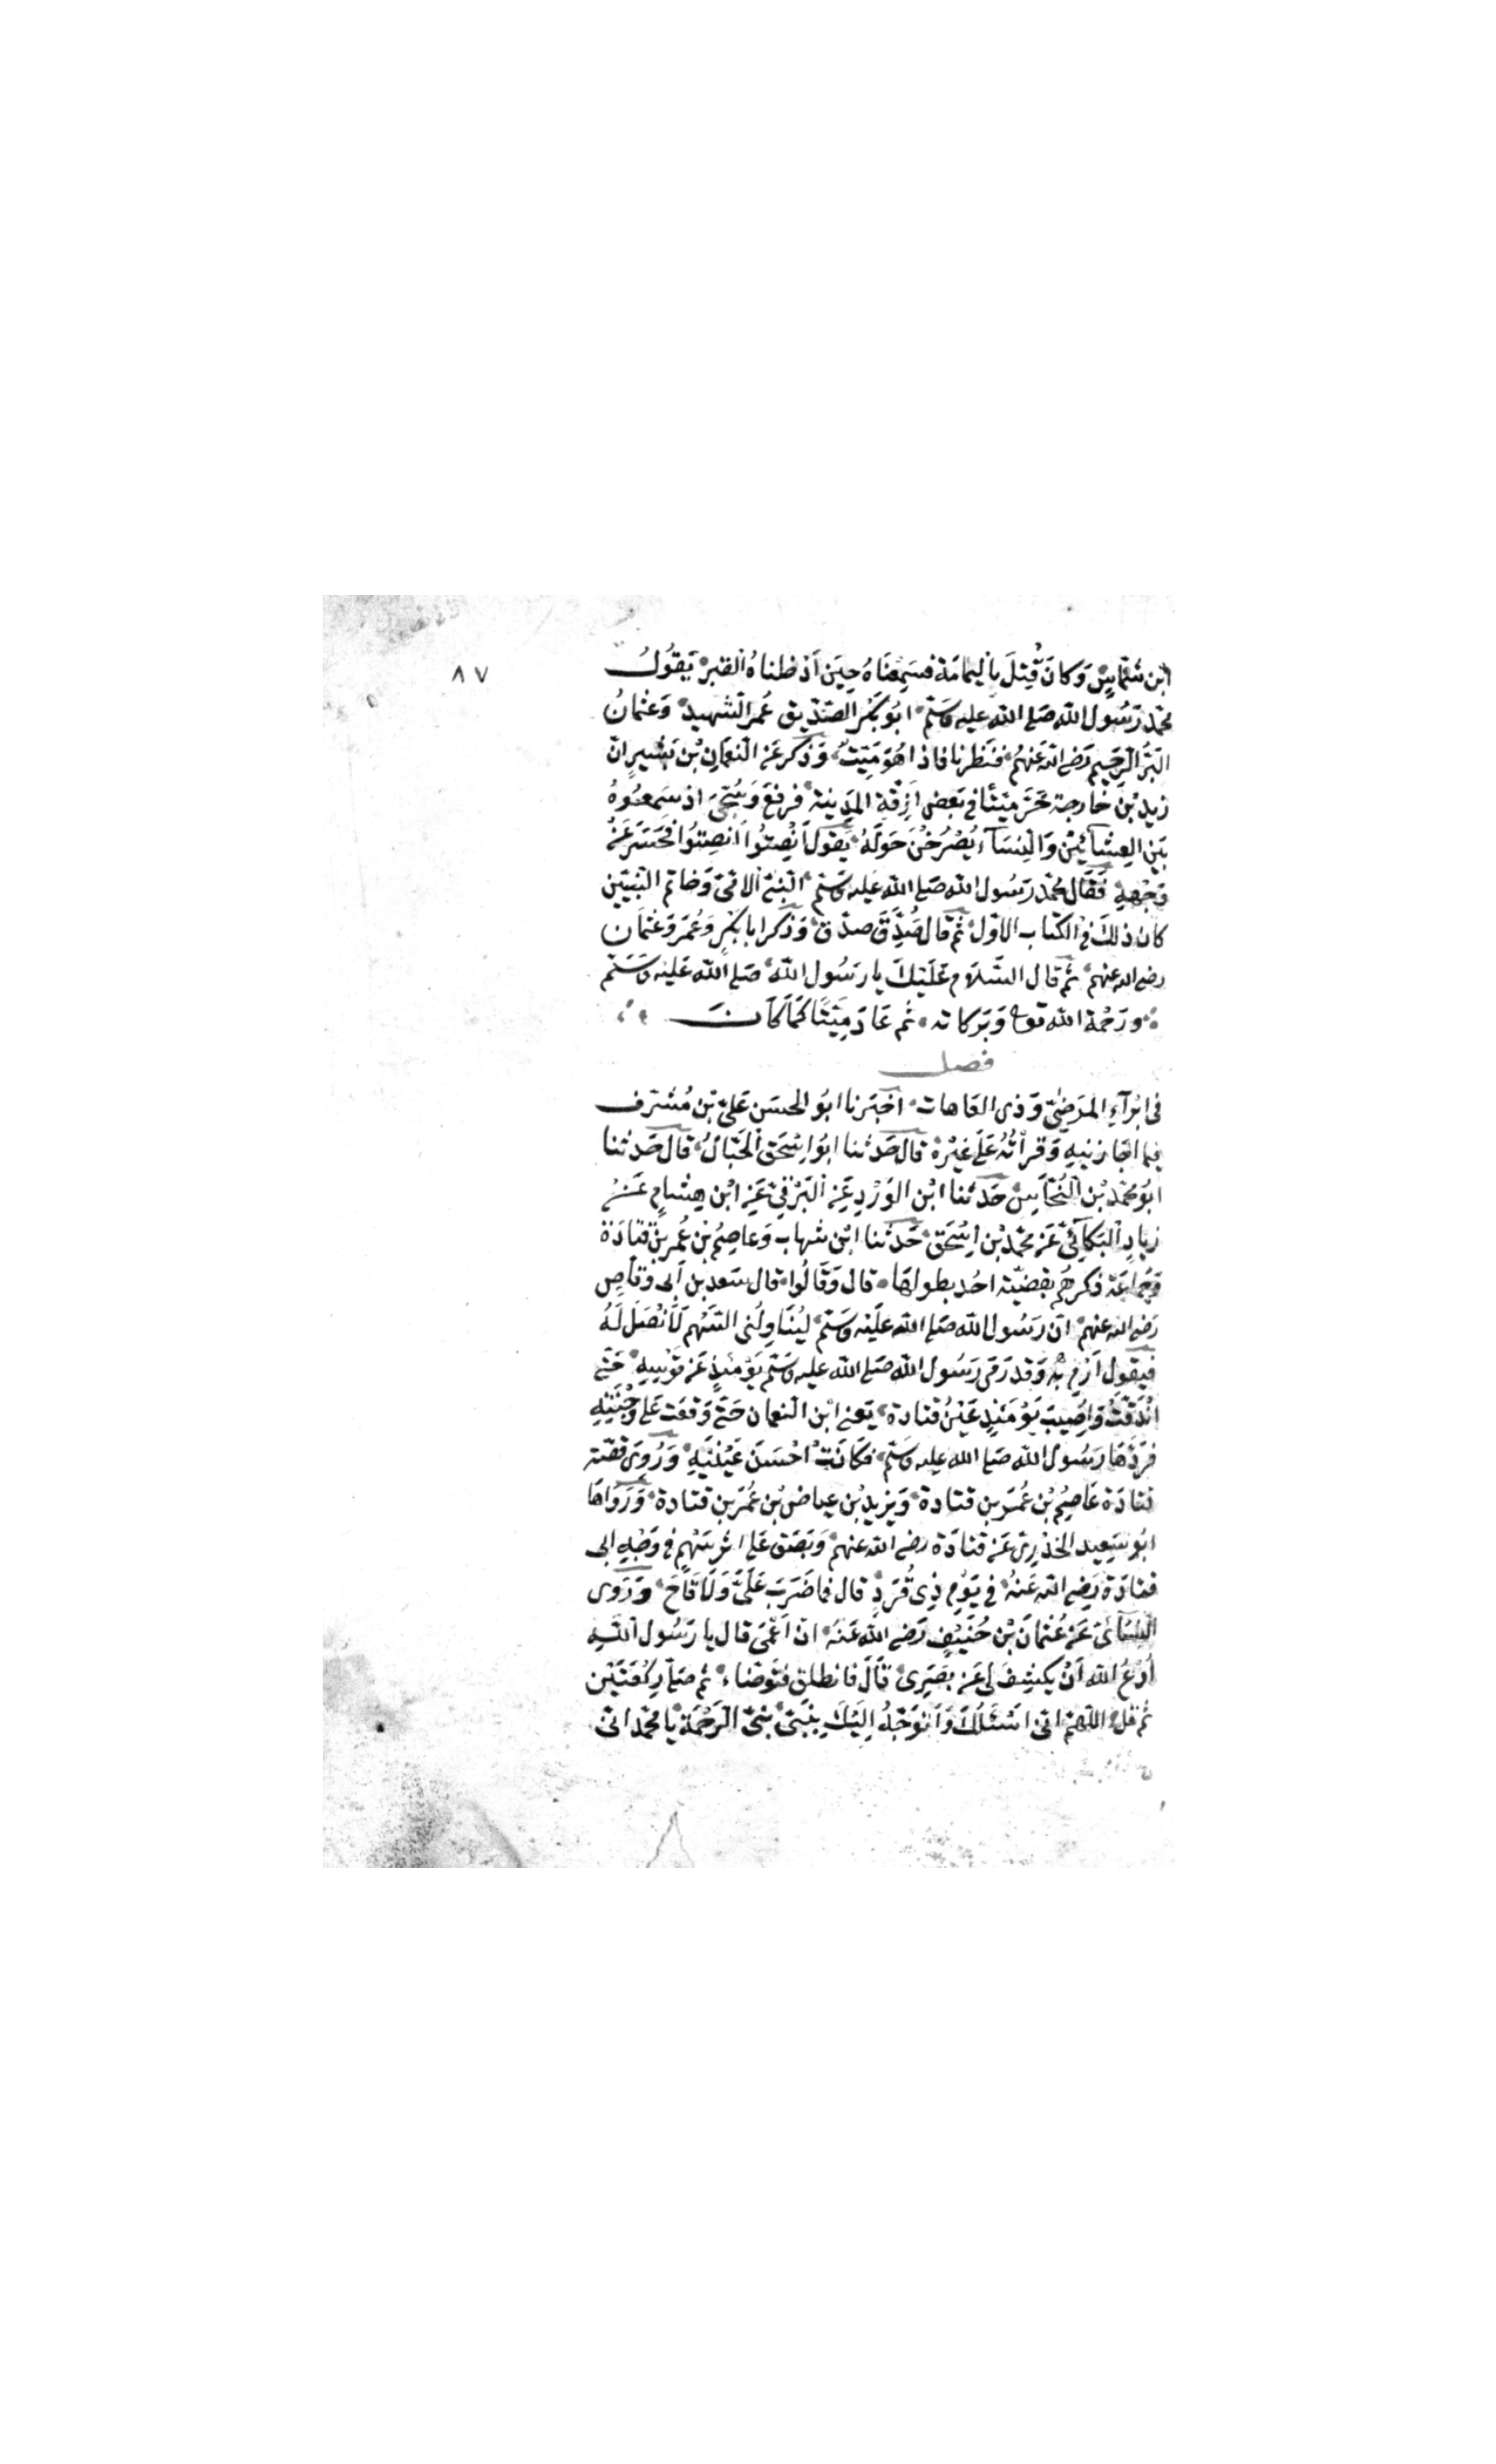 ٨٧
ابن شماس وَكانَ قُتِلَ باليمامَة فسَمِعنَاهُ حِينَ اَدْخلناهُ القبرَ يَقُولُ
محمّد رَسُول الله صَلى الله عليه وسَلّم ابُو بَكْر الصّدّيق عُمر الشهيد وَعثمانُ
البَرّ الرّحيم رَضى الله عَنهُم فنَظرنا فاذا هُوَ مَيّتٌ وَذكر عَن النّعمَان بْن بَشير انّ
زيد بْن خارجة خَرّ ميتًا فى بَعض اَزِقّةِ المَدينة فرفعَ وَسُجّىَ اذ سَمعُوهُ
بَين العِشائَيْن وَالنِسَآء يُصْرُخْنَ حَولَهُ يَقول اَنْصِتُوا اَنصِتُوا فحَسَرَ عَنْ
وَجْههِ فَقَال محمّد رَسُول الله صَلى الله عَليه وسَلّم النّبىّ الامّىّ وَخاتم النّبيّين
كانَ ذلكَ فى الكتاب الاوّل ثم قال صَدَقَ صدَق وَذكر ابا بَكْرٍ وَعُمَرَ وَعثمَان
رضى الله عنهم ثم قال السّلام عَلَيْكَ يا رَسُول الله صَلى الله عَليْه وَسَلّم
وَرَحْمة الله تعالى وَبَرَكاته ثم عَادَ مَيّتًا كَمَا كَانَ
فصل
فى ابْرَآءِ المَرضىٰ وَذى العَاهات اَخبَرنا ابُو الحسَن عَلىّ بْن مُشَرّف
فيما اجَازنيهِ وَقرأتُهُ عَلَى غيْرِه قال حَدثنا ابُو اسْحَق الحَبّالُ قال حَدثنا
ابُو محمّد بْن النّحّاسِ حَدثنا ابْن الوَرْدِ عَنِ البَرْقىّ عَنِ ابْن هِشامٍ عَنْ
زيادٍ البَكّائىّ عَن محمّد بْن اسْحَق حَدّثنا ابْن شهاب وَعاصِم بْن عُمر بْن قتادَة
وَجَمَاعَة ذكرَهُم بقضيّة اُحُد بطولهَا قال وَقَالُوا قال سَعد بن اَبى وَقاصٍ
رَضى الله عنهم انّ رَسُول الله صَلى الله عَليْه وسَلّم ليُنَاولُنى السّهْم لاَ نَصْلَ لَهُ
فيَقول اَرْمِ بهِ وَقد رَمى رَسُول الله صَلى الله عليه وسَلّم يَوْمئذٍ عَن قوْسِهِ حَتّى
انْدَقّتْ وَاُصِيبَ يَوْمَئذٍ عَيْنُ قتادة يَعنى ابْن النّعمان حَتّى وَقعَت عَلى وَجْنَتِهِ
فرَدّهَا رَسُول الله صَلى الله عليه وسَلّم فكَانَتْ احْسَنَ عَيْنَيْهِ وَرُوِىَ قصّة
قتَادَة عَاصِمُ بْن عُمَرَ بن قتادة وَيَزيد بْن عياض بْن عُمَر بن قتادة وَرَوَاهَا
ابُو سَعِيد الخدْرِىّ عَن قتادَة رضى الله عنهم وَبَصَق عَلى اثر سَهْم فى وَجْهِ ابى
قتادَة رَضى الله عَنهُ فى يَوْم ذِى قُرَدٍ قال فما ضَرَبَ عَلَىّ وَلا قاحَ وَرَوى
النسَآئىّ عَن عُثمانَ بْن حُنَيْفٍ رَضى الله عَنهُ ان اَعْمَى قال يا رَسُول الله
اُدْعُ الله اَنْ يكشِفَ لى عَن بَصَرى قالَ فانطلق فتَوضاء ثم صَلّ رَكْعَتَيْن
ثم قل اللّهمّ انى اسْئلكَ وَاَتوَجّهُ اِلَيْكَ بنَبىّ نبىّ الرّحْمَة يا محمّد انّى